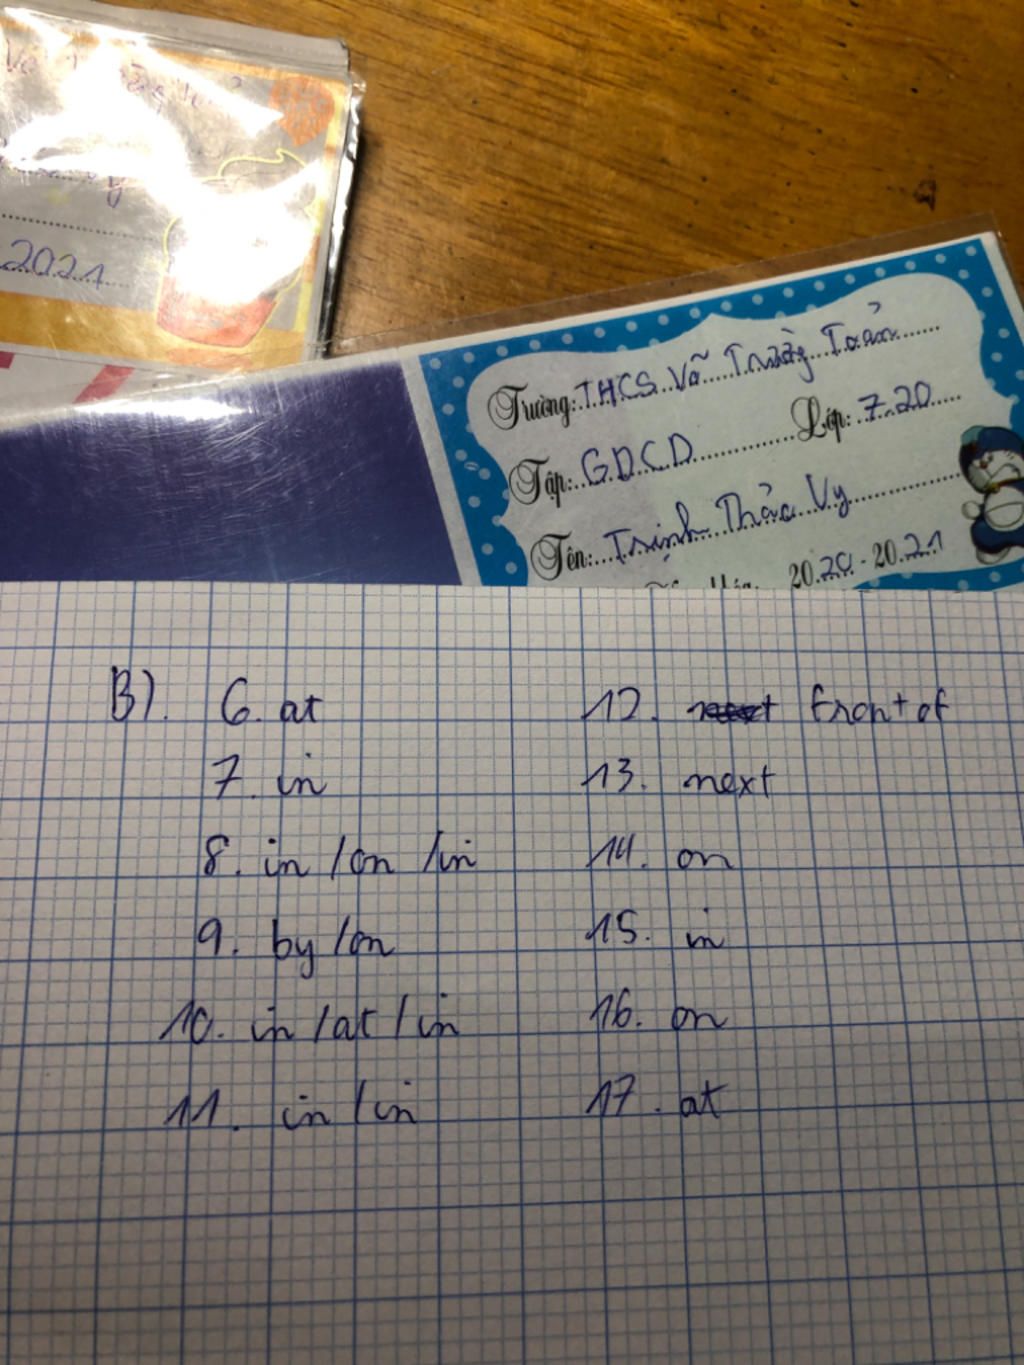 2021
Trường: THCS Võ Trường Toản
Tập: GDCD Lớp: 7.20
Tên: Trịnh Thảo Vy
2020-2021
B). 6. at
7. in
8. in / on / in
9. by / on
10. in / at / in
11. in / in
12. front of
13. next
14. on
15. in
16. on
17. at